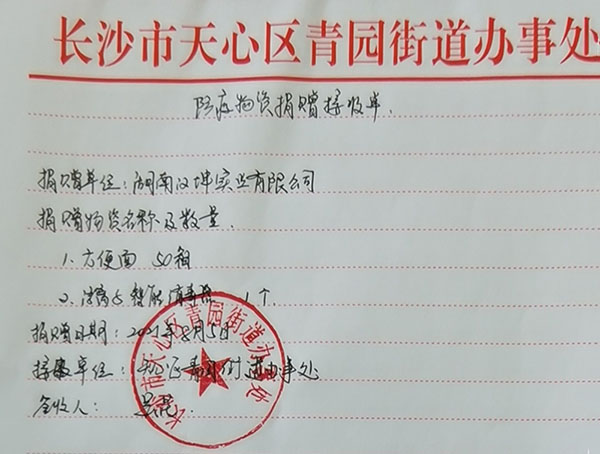 长沙市天心区青园街道办事处
防疫物资捐赠接收单.
捐赠单位:湖南汉坤实业有限公司
捐赠物资名称及数量.
1.方便面 50箱
2. 智能消毒 1个.
捐赠日期:2021年8月5日
接收单位:天心区青园街道办事处
签收人:
长沙市天心区青园街道办事处